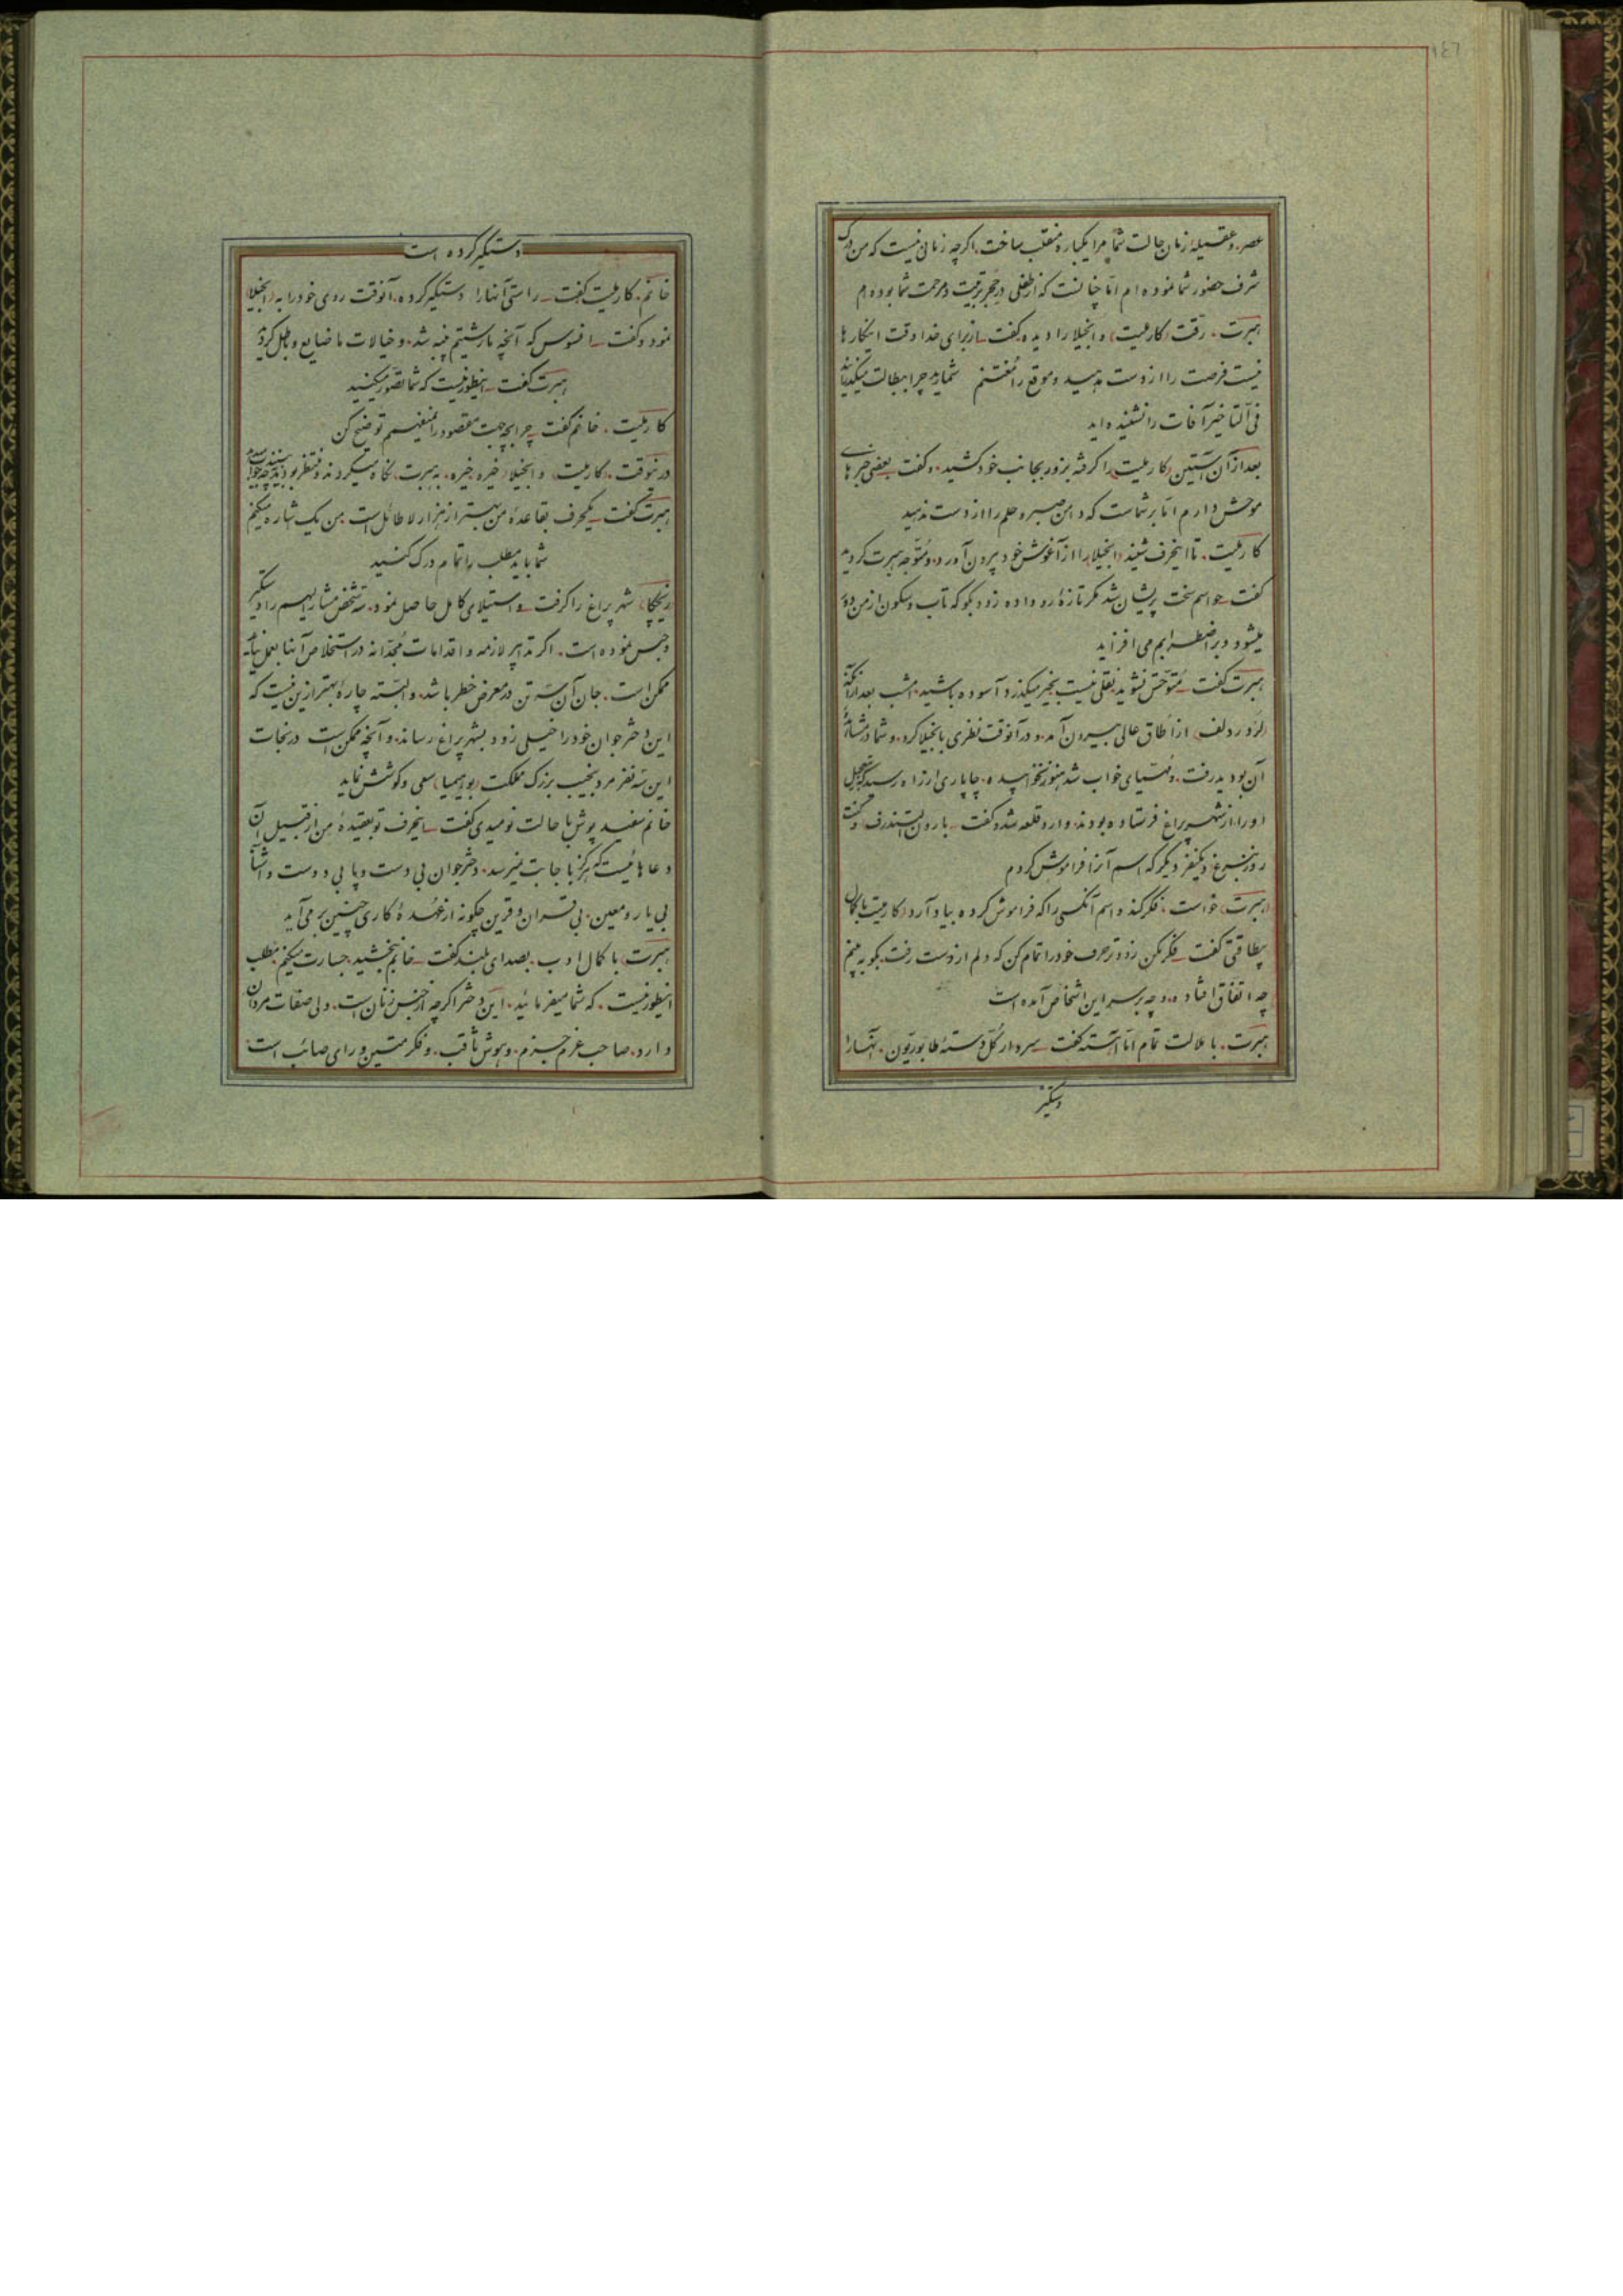 ۱۴۶
عصر. وعقیلهٔ زمان حالت شما مرا یکباره منقلب ساخت. اگرچه زمانی نیست که من درک
شرف حضور شما نموده ام امّا چنانست که از طفلی در حجر تربیت و مرحمت شما بوده ام
هبرت. رقت (کارملیت) و انجیلا را دیده گفت ـ از برای خدا وقت اینکارها
نیست فرصت را از دست مدهید و موقع را مُغتنم شمارید چرا بطالت میکنید
فی التاخیر آفات را نشنیده اید
بعد از آن آستین (کارملیت) را گرفته بزور بجانب خود کشید. و گفت بعضی خبرهای
موحش دارم امّا بر شماست که دامن صبر و حلم را از دست ندهید
کارملیت. تا اینحرف شنید (انجیلا) را از آغوش خود بیرون آورد. و متوجه هبرت گردید
گفت حواسم سخت پریشان شد مگر تازهٔ رو داده زود بگو که تاب و سکون از من دور
میشود و بر اضطرابم می افزاید
هبرت گفت ـ مُتوحّش نشوید نقلی نیست بخیر میگذرد آسوده باشید. امشب بعد از آنکه
(لرُد رُدلف) از اُطاق عالی بیرون آمد. و در آنوقت نظری بانجیلا کرد. و شما در مشاهدهٔ
آن بودید رفت. و مُهیّای خواب شد هنوز نخوابیده. چاپاری از راه رسید که بتعجیل
او را از شهر پراغ فرستاده بودند. وارد قلعه شد و گفت ـ بارون التندرف و کنت
رزنبرغ و یکنفر دیگر که اسم آنرا فراموش کردم
(هبرت) خواست. فکر کند و اسم آنکسی را که فراموش کرده بیاد آرد (کارملیت) با کمال
بیطاقتی گفت ـ فکر مکن زودتر حرف خود را تمام کن که دلم از دست رفت. بگو به بینم
چه اتفاق افتاده. و چه بر سر این اشخاص آمده است
هبرت. با ملالت تمام امّا آهسته گفت ـ سردار کلّ دستهٔ طابوریّون. آنها را
دستگیر
دستگیر کرده است
خانم. کارملیت گفت ـ راستی آنها را دستگیر کرده. آنوقت روی خود را به (انجیلا)
نمود و گفت ـ افسوس که آنچه ما رشتیم پنبه شد. و خیالات ما ضایع و باطل گردید
هبرت گفت ـ اینطور نیست که شما تصوّر میکنید
کارملیت. خانم گفت ـ چرا بچه جهت مقصود را نمیفهمم توضیح کن
در اینوقت. (کارملیت) و (انجیلا) خیره خیره. به هبرت نگاه میکردند و منتظر بودند ببینند چه جواب میدهد
هبرت گفت ـ یکحرف بقاعدهٔ من بهتر از هزار لاطائل است. من یک اشاره میکنم
شما باید مطلب را تمام درک کنید
(زیچکا) شهر پراغ را گرفت و استیلای کامل حاصل نمود. سه شخص مشارالیهم را دستگیر
و حبس نموده است. اگر تدابیر لازمه و اقدامات مُجدّانه در استخلاص آنها بعمل نیاید
ممکن است. جان آن سه تن در معرض خطر باشد. و البتّه چارهٔ بهتر ازین نیست که
این دختر جوان خود را خیلی زود بشهر پراغ رساند. و آنچه ممکن است در نجات
این سه نفر مرد نجیب بزرگ مملکت (بوهیمیا) سعی و کوشش نماید
خانم سفید پوش با حالت نومیدی گفت ـ اینحرف تو بعقیدهٔ من از قبیل آن
دعاهائیست که هرگز باجابت نمیرسد. دختر جوان بی دست و پا بی دوست و آشنا
بی یار و معین. بی قران و قرین چگونه از عُهدهٔ کاری چنین بر می آید
هبرت (با کمال ادب. بصدای بلند گفت ـ خانم ببخشید. جسارت میکنم مطلب
اینطور نیست. که شما میفرمائید. این دختر اگرچه از جنس زنان است. ولی صفات مردان
دارد. صاحب عزم جزم. و هوش ثاقب. و فکر متین و رای صائب است.